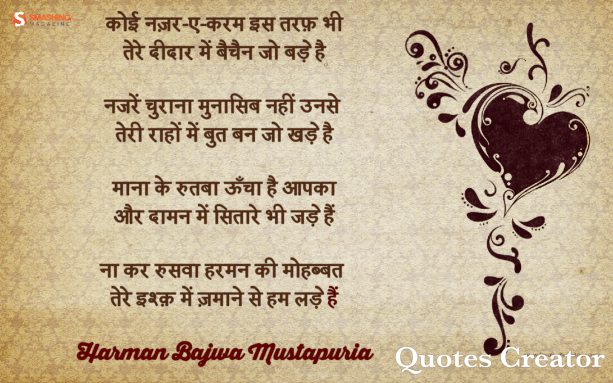 SMASHING
MAGAZINE
कोई नज़र-ए-करम इस तरफ़ भी
तेरे दीदार में बैचैन जो बड़े है
नजरें चुराना मुनासिब नहीं उनसे
तेरी राहों में बुत बन जो खड़े है
माना के रुतबा ऊँचा है आपका
और दामन में सितारे भी जड़े हैं
ना कर रुसवा हरमन की मोहब्बत
तेरे इश्क़ में ज़माने से हम लड़े हैं
Harman Bajwa Mustapuria
Quotes Creator